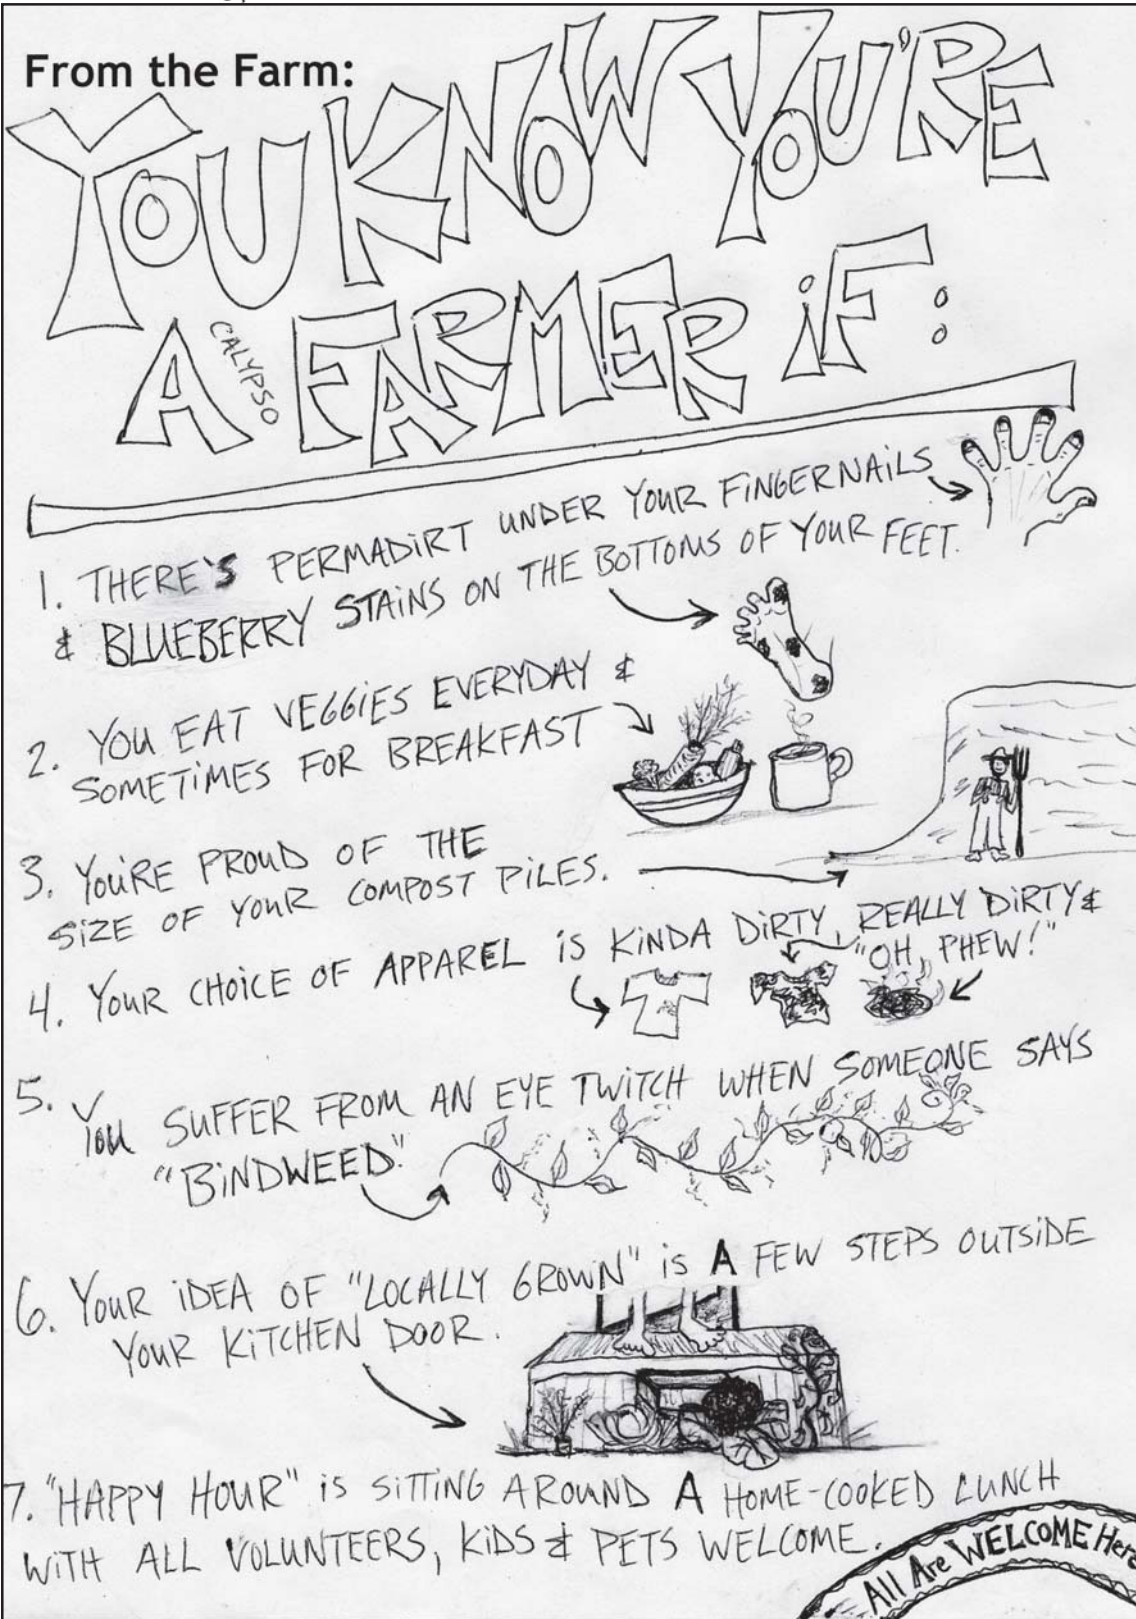 From the Farm:
YOU KNOW YOU'RE
A CALYPSO FARMER iF:
1. THERE'S PERMADIRT UNDER YOUR FINGERNAILS
& BLUEBERRY STAINS ON THE BOTTOMS OF YOUR FEET.
2. YOU EAT VEGGIES EVERYDAY &
SOMETIMES FOR BREAKFAST
3. YOU'RE PROUD OF THE
SIZE OF YOUR COMPOST PILES.
4. YOUR CHOICE OF APPAREL IS KINDA DIRTY, REALLY DIRTY &
"OH, PHEW!"
5. YOU SUFFER FROM AN EYE TWITCH WHEN SOMEONE SAYS
"BINDWEED"
6. YOUR IDEA OF "LOCALLY GROWN" IS A FEW STEPS OUTSIDE
YOUR KITCHEN DOOR.
7. "HAPPY HOUR" IS SITTING AROUND A HOME-COOKED LUNCH
WITH ALL VOLUNTEERS, KIDS & PETS WELCOME.
All Are WELCOME Here